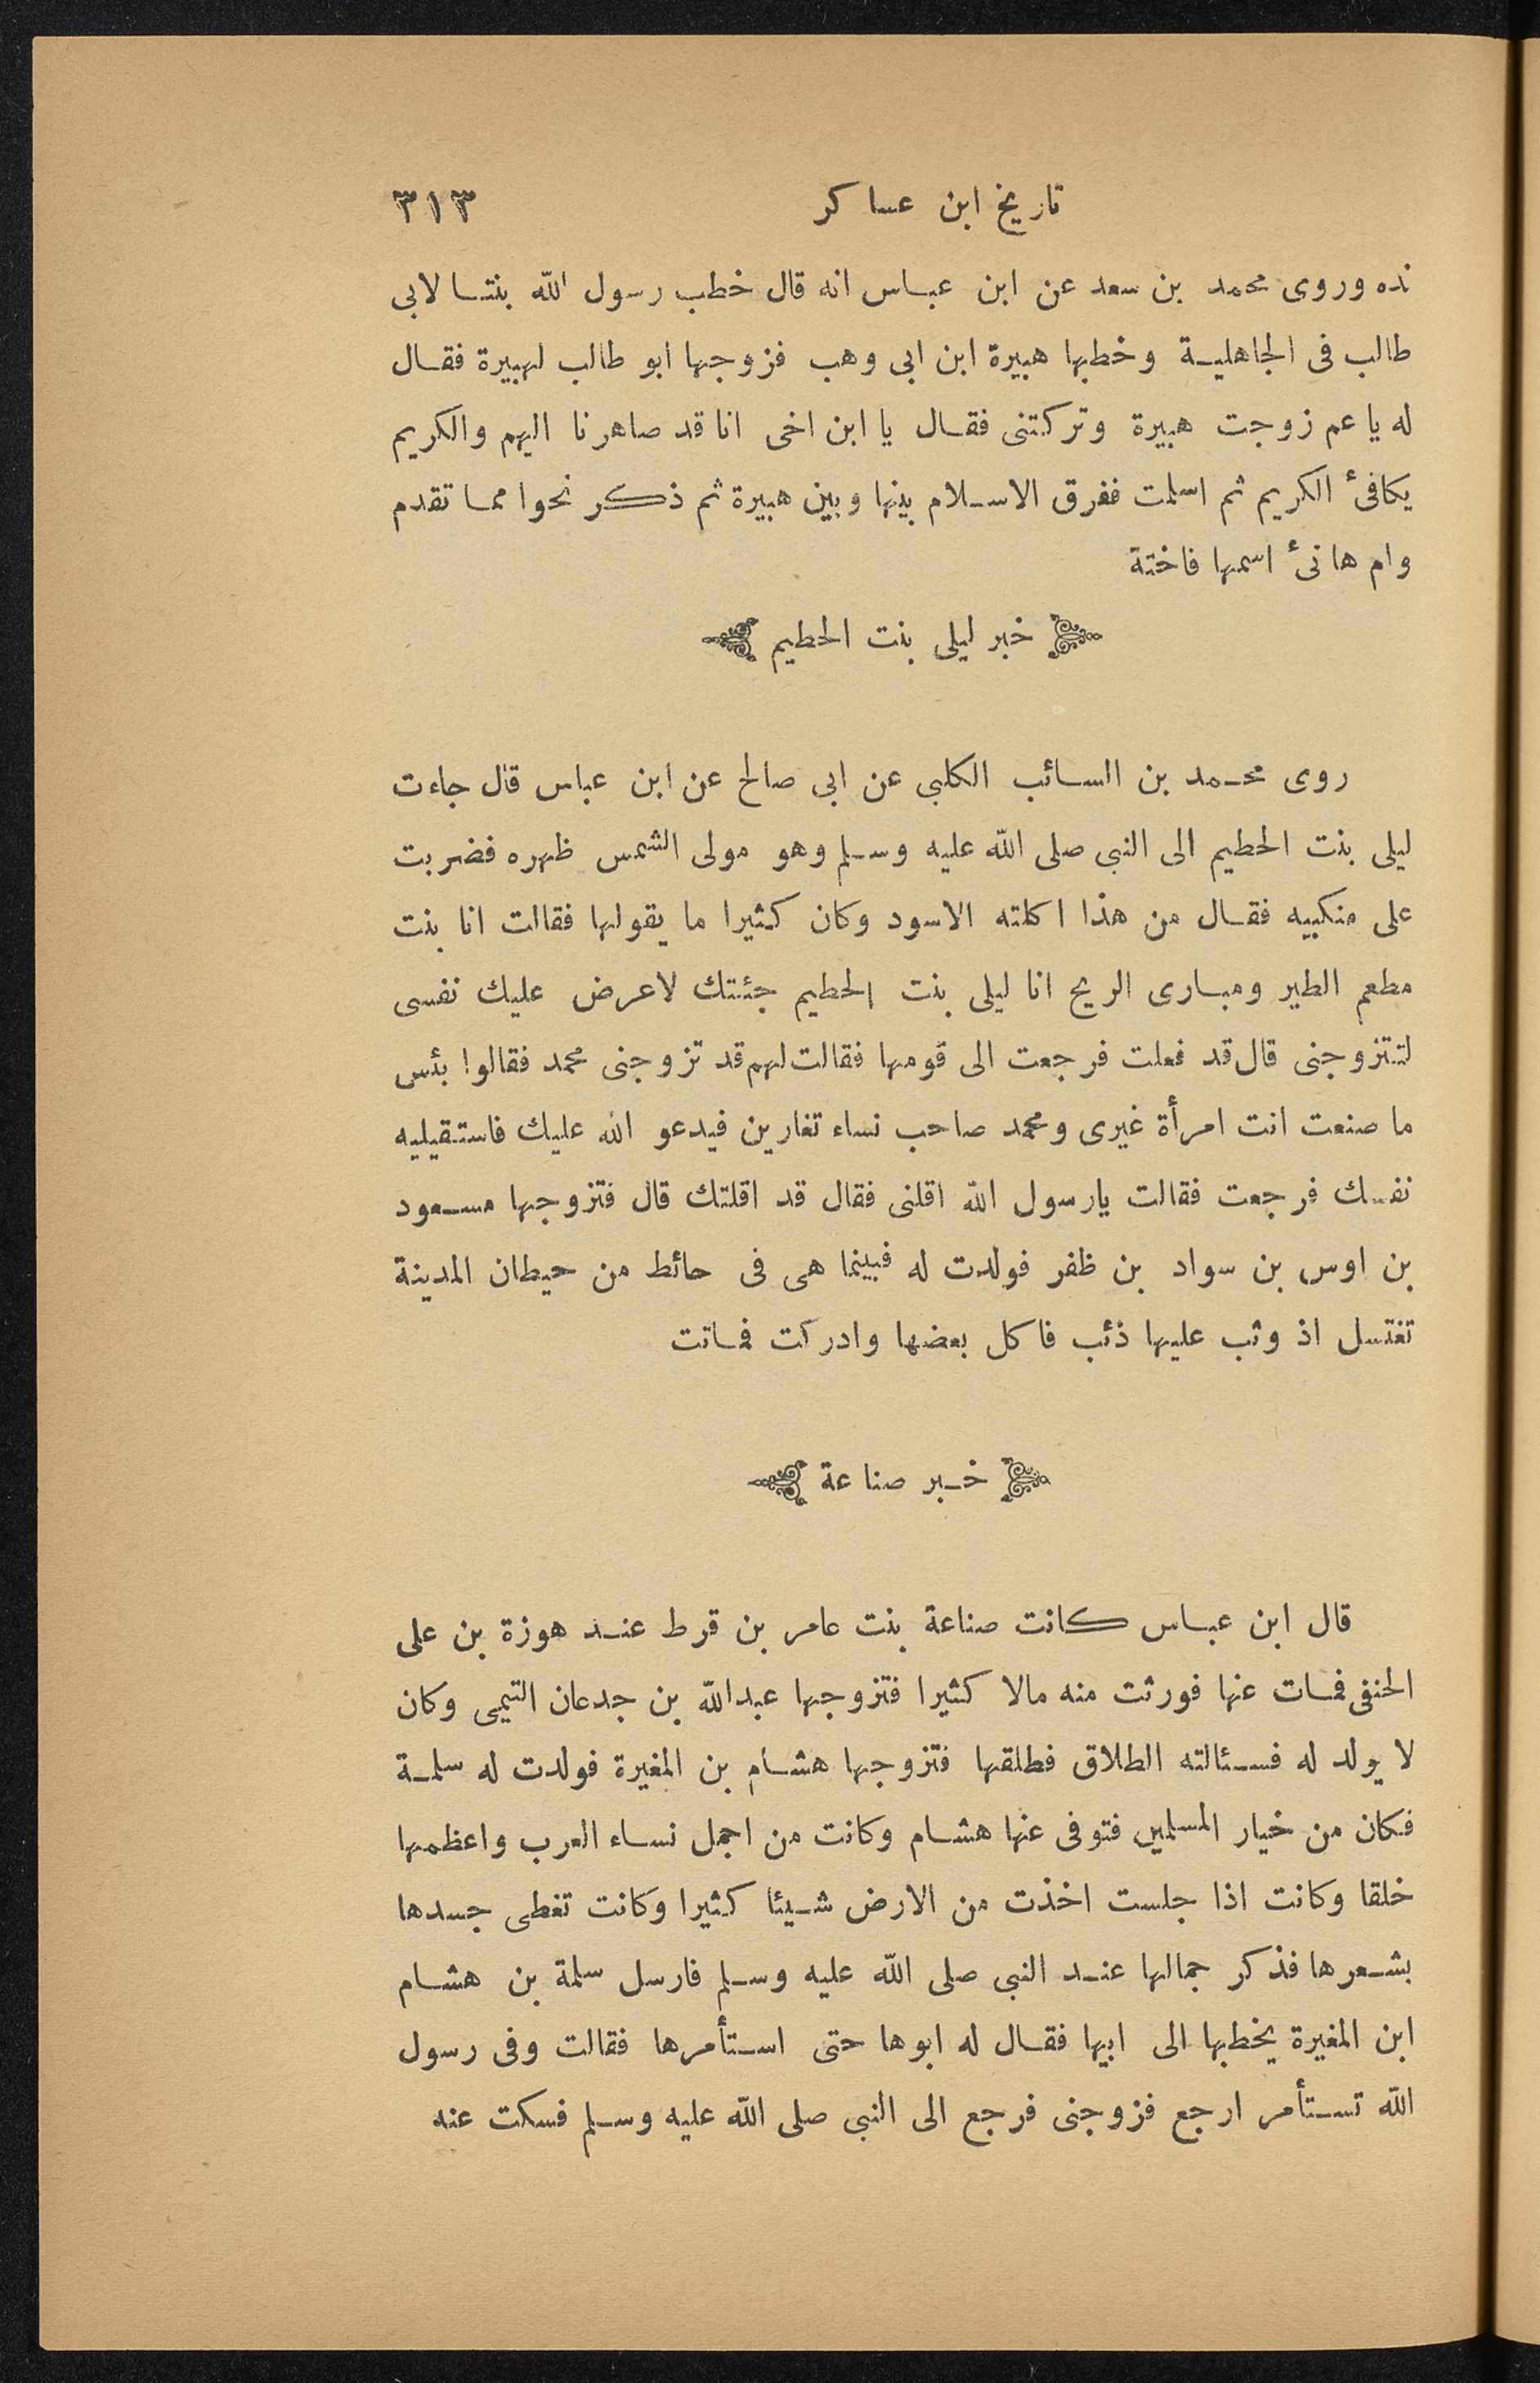 تاريخ ابن عساكر ٣١٣
نده وروى محمد بن سعد عن ابن عباس انه قال خطب رسول الله بنتا لابى
طالب فى الجاهلية وخطبها هبيرة ابن ابى وهب فزوجها ابو طالب لهبيرة فقال
له يا عم زوجت هبيرة وتركتنى فقال يا ابن اخى انا قد صاهرنا اليهم والكريم
يكافئ الكريم ثم اسلمت ففرق الاسلام بينها وبين هبيرة ثم ذكر نحوا مما تقدم
وام هانئ اسمها فاختة
خبر ليلى بنت الحطيم
روى محمد بن السائب الكلبى عن ابى صالح عن ابن عباس قال جاءت
ليلى بنت الحطيم الى النبى صلى الله عليه وسلم وهو مولى الشمس ظهره فضربت
على منكبيه فقال من هذا اكلته الاسود وكان كثيرا ما يقولها فقالت انا بنت
مطعم الطير ومبارى الريح انا ليلى بنت الحطيم جئتك لاعرض عليك نفسى
لتتزوجنى قال قد فعلت فرجعت الى قومها فقالت لهم قد تزوجنى محمد فقالوا بئس
ما صنعت انت امرأة غيرى ومحمد صاحب نساء تغارين فيدعو الله عليك فاستقيليه
نفسك فرجعت فقالت يارسول الله اقلنى فقال قد اقلتك قال فتزوجها مسعود
بن اوس بن سواد بن ظفر فولدت له فبينما هى فى حائط من حيطان المدينة
تغتسل اذ وثب عليها ذئب فاكل بعضها وادركت فماتت
خبر صناعة
قال ابن عباس كانت صناعة بنت عامر بن قرط عند هوزة بن على
الحنفى فمات عنها فورثت منه مالا كثيرا فتزوجها عبدالله بن جدعان التيمى وكان
لا يولد له فسئالته الطلاق فطلقها فتزوجها هشام بن المغيرة فولدت له سلمة
فكان من خيار المسلمين فتوفى عنها هشام وكانت من اجمل نساء العرب واعظمها
خلقا وكانت اذا جلست اخذت من الارض شيئا كثيرا وكانت تغطى جسدها
بشعرها فذكر جمالها عند النبى صلى الله عليه وسلم فارسل سلمة بن هشام
ابن المغيرة يخطبها الى ابيها فقال له ابوها حتى استأمرها فقالت وفى رسول
الله تستأمر ارجع فزوجنى فرجع الى النبى صلى الله عليه وسلم فسكت عنه